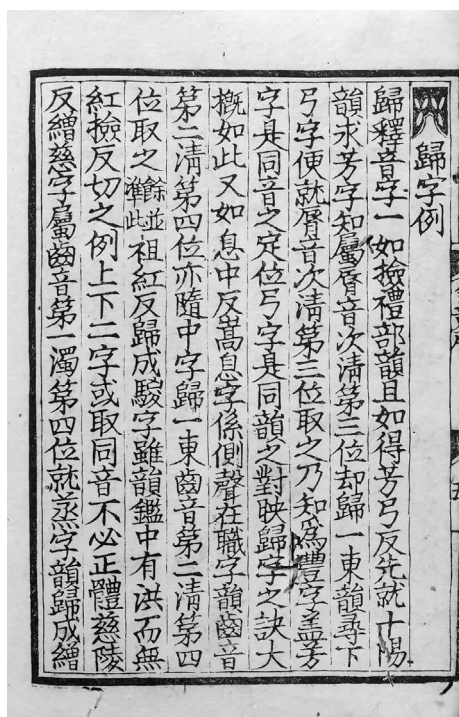 歸字例
歸釋音字一如撿禮部韻且如得芳弓反先就十陽
韻求芳字知屬脣音次清第三位却歸一東韻尋下
弓字便就脣音次清第三位取之乃知爲豐字盖芳
字是同音之定位弓字是同韻之對映歸字之訣大
槩如此又如息中反嵩息字係側聲在職字韻齒音
第二清第四位亦隨中字歸一東齒音第二清第四
位取之餘並準此祖紅反歸成騣字雖韻鑑中有洪而無
紅撿反切之例上下二字或取同音不必正體慈陵
反繒慈字屬齒音第一濁第四位就蒸字韻歸成繒